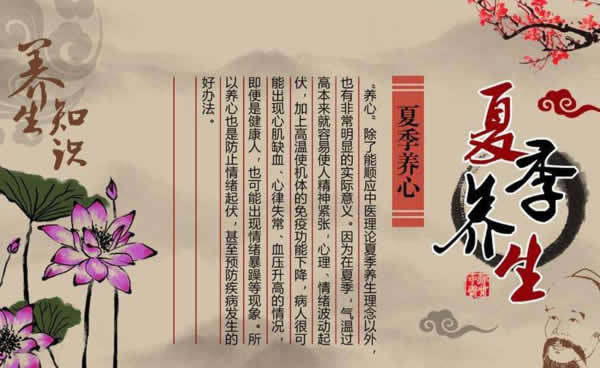 夏季
养生
夏季养心
“养心”除了能顺应中医理论夏季养生理念以外，
也有非常明显的实际意义。因为在夏季，气温过
高本来就容易使人精神紧张，心理、情绪波动起
伏，加上高温使机体的免疫功能下降，病人很可
能出现心肌缺血、心律失常、血压升高的情况，
即便是健康人，也可能出现情绪暴躁等现象。所
以养心也是防止情绪起伏，甚至预防疾病发生的
好办法。
养生
知识